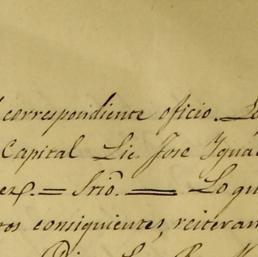 correspondiente oficio.
Capital Lic. Jose Ygna
= Srio. = Lo qu
ros consiguientes, reitera